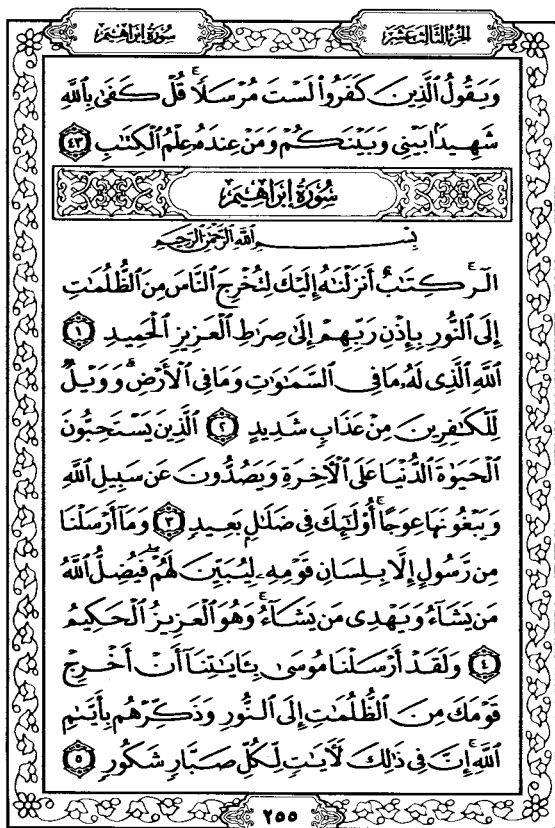 سُورَةُ إِبْرَاهِيم
الجُزْءُ الثَّالِثَ عَشَر
وَيَقُولُ ٱلَّذِينَ كَفَرُوا۟ لَسْتَ مُرْسَلًا ۚ قُلْ كَفَىٰ بِٱللَّهِ
شَهِيدًۢا بَيْنِى وَبَيْنَكُمْ وَمَنْ عِندَهُۥ عِلْمُ ٱلْكِتَـٰبِ ٤٣
سُورَةُ إِبْرَاهِيم
بِسْمِ ٱللَّهِ ٱلرَّحْمَـٰنِ ٱلرَّحِيمِ
الٓر ۚ كِتَـٰبٌ أَنزَلْنَـٰهُ إِلَيْكَ لِتُخْرِجَ ٱلنَّاسَ مِنَ ٱلظُّلُمَـٰتِ
إِلَى ٱلنُّورِ بِإِذْنِ رَبِّهِمْ إِلَىٰ صِرَٰطِ ٱلْعَزِيزِ ٱلْحَمِيدِ ١
ٱللَّهِ ٱلَّذِى لَهُۥ مَا فِى ٱلسَّمَـٰوَٰتِ وَمَا فِى ٱلْأَرْضِ ۗ وَوَيْلٌ
لِّلْكَـٰفِرِينَ مِنْ عَذَابٍ شَدِيدٍ ٢ ٱلَّذِينَ يَسْتَحِبُّونَ
ٱلْحَيَوٰةَ ٱلدُّنْيَا عَلَى ٱلْـَٔاخِرَةِ وَيَصُدُّونَ عَن سَبِيلِ ٱللَّهِ
وَيَبْغُونَهَا عِوَجًا ۚ أُو۟لَـٰٓئِكَ فِى ضَلَـٰلٍۭ بَعِيدٍ ٣ وَمَآ أَرْسَلْنَا
مِن رَّسُولٍ إِلَّا بِلِسَانِ قَوْمِهِۦ لِيُبَيِّنَ لَهُمْ ۖ فَيُضِلُّ ٱللَّهُ
مَن يَشَآءُ وَيَهْدِى مَن يَشَآءُ ۚ وَهُوَ ٱلْعَزِيزُ ٱلْحَكِيمُ
٤ وَلَقَدْ أَرْسَلْنَا مُوسَىٰ بِـَٔايَـٰتِنَآ أَنْ أَخْرِجْ
قَوْمَكَ مِنَ ٱلظُّلُمَـٰتِ إِلَى ٱلنُّورِ وَذَكِّرْهُم بِأَيَّىٰمِ
ٱللَّهِ ۚ إِنَّ فِى ذَٰلِكَ لَـَٔايَـٰتٍ لِّكُلِّ صَبَّارٍ شَكُورٍ ٥
٢٥٥